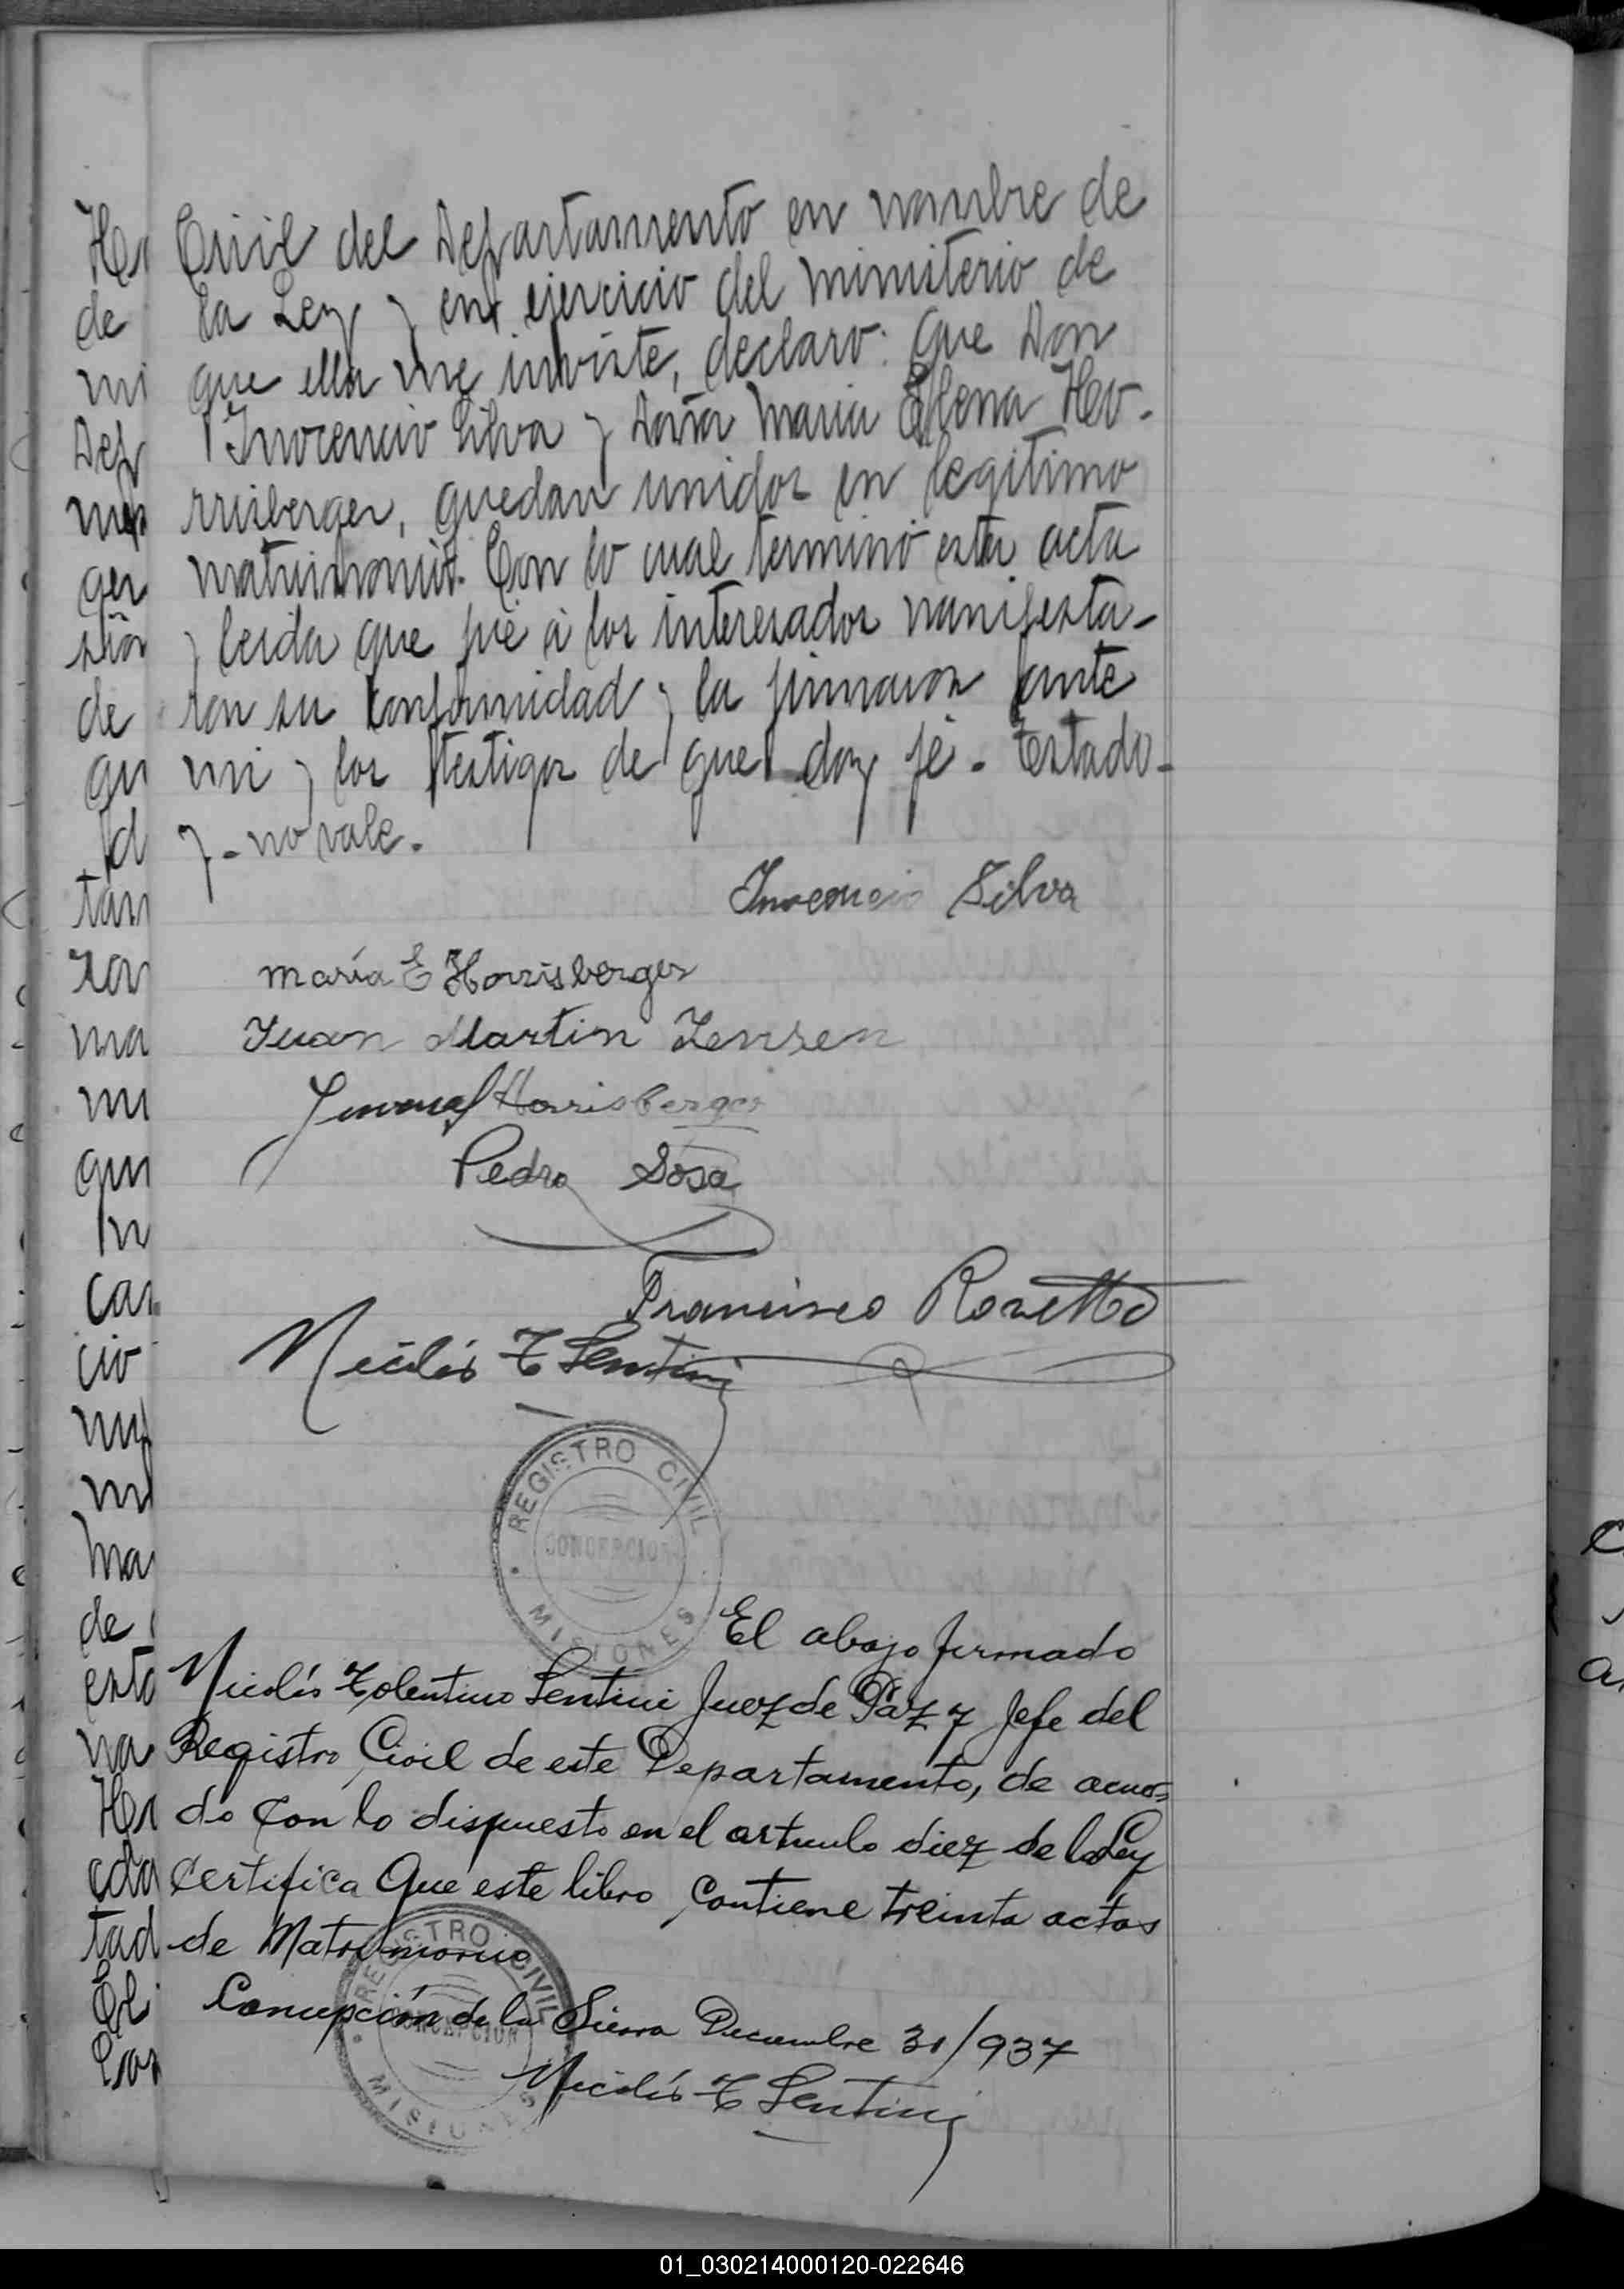 Civil del Departamento en nombre de
la Ley y en ejercicio del ministerio de
que ella me inviste, declaro: que Don
Inocencio Silva y Doña Maria Elena Ho-
rrisberger, quedan unidos en legitimo
matrimonio. Con lo cual terminó esta acta
y leida que fué á los interesados manifesta-
ron su conformidad y la firmaron ante
mi y los testigos de que doy fé. Testado-
y- no vale.
Inocencio Silva
maría E Horrisberger
Juan Martin Jensen
Horrisberger
Pedro Sosa
Francisco
Nicolás T Sentini
REGISTRO CIVIL
CONCEPCION
MISIONES
El abajo firmado
Nicolás Tolentino Sentini Juez de Paz y Jefe del
Registro Civil de este Departamento, de acuer=
do con lo dispuesto en el artículo diez de la Ley
Certifica Que este libro contiene treinta actas
de Matrimonio
Concepción de la Sierra Diciembre 31/937
REGISTRO CIVIL
CONCEPCION
MISIONES
Nicolás T Sentini
01_030214000120-022646